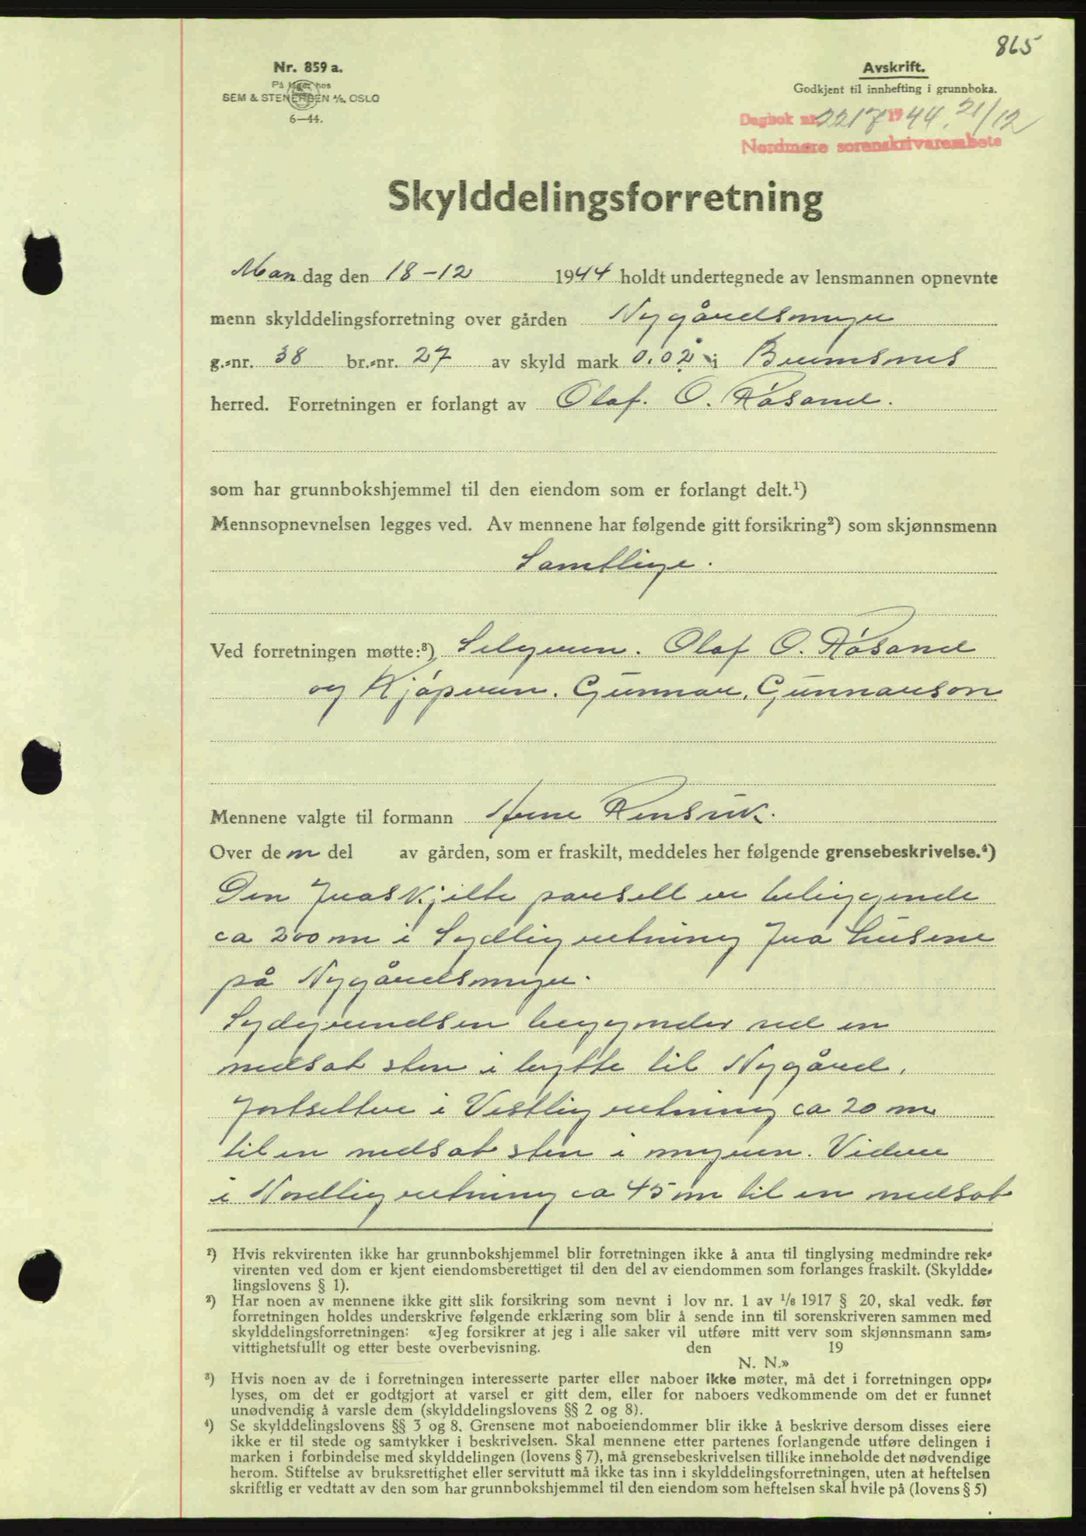 865
Nr. 859 a.
På lager hos
SEM & STENERSEN A/S, OSLO
6—44.
Avskrift.
Godkjent til innhefting i grunnboka.
Dagbok nr. 2217 1944. 21/12
Nordmøre sorenskrivarembete
Skylddelingsforretning
Mandag den 18-12 1944 holdt undertegnede av lensmannen opnevnte
menn skylddelingsforretning over gården Nygårdsmyr
g.-nr. 38 br.-nr. 27 av skyld mark 0.02 i Bremsnes
herred. Forretningen er forlangt av Olaf. O. Røsand.
som har grunnbokshjemmel til den eiendom som er forlangt delt.¹)
Mennsopnevnelsen legges ved. Av mennene har følgende gitt forsikring²) som skjønnsmenn
Samtlige.
Ved forretningen møtte:³) Selgeren. Olaf O. Røsand
og Kjøperen. Gunnar. Gunnarson
Mennene valgte til formann Arne Rensvik.
Over den del av gården, som er fraskilt, meddeles her følgende grensebeskrivelse.⁴)
Den fraskjilte parsell er beliggende
ca 200 m i Sydlig retning fra husene
på Nygårdsmyr.
Sydgrendsen begynder ved en
nedsat sten i bytte til Nygård.
fortsetter i Vestlig retning ca 20 m
til en nedsat sten i myren. Videre
i Nordlig retning ca 45 m til en nedsat
¹) Hvis rekvirenten ikke har grunnbokshjemmel blir forretningen ikke å anta til tinglysing medmindre rek-
virenten ved dom er kjent eiendomsberettiget til den del av eiendommen som forlanges fraskilt. (Skyldde-
lingslovens § 1).
²) Har noen av mennene ikke gitt slik forsikring som nevnt i lov nr. 1 av 1/6 1917 § 20, skal vedk. før
forretningen holdes underskrive følgende erklæring som blir å sende inn til sorenskriveren sammen med
skylddelingsforretningen: «Jeg forsikrer at jeg i alle saker vil utføre mitt verv som skjønnsmann sam-
vittighetsfullt og etter beste overbevisning. den 19
N. N.»
³) Hvis noen av de i forretningen interesserte parter eller naboer ikke møter, må det i forretningen opp-
lyses, om det er godtgjort at varsel er gitt dem, eller for naboers vedkommende om det er funnet
unødvendig å varsle dem (skylddelingslovens §§ 2 og 8).
⁴) Se skylddelingslovens §§ 3 og 8. Grensene mot naboeiendommer blir ikke å beskrive dersom disses eiere
ikke er til stede og samtykker i beskrivelsen. Skal mennene etter partenes forlangende utføre delingen i
marken i forbindelse med skylddelingen (lovens § 7), må grensebeskrivelsen tillike inneholde det nødvendige
herom. Stiftelse av bruksrettighet eller servitutt må ikke tas inn i skylddelingsforretningen, uten at heftelsen
skriftlig er vedtatt av den som har grunnbokshjemmel til den eiendom som heftelsen skal hvile på (lovens § 5)